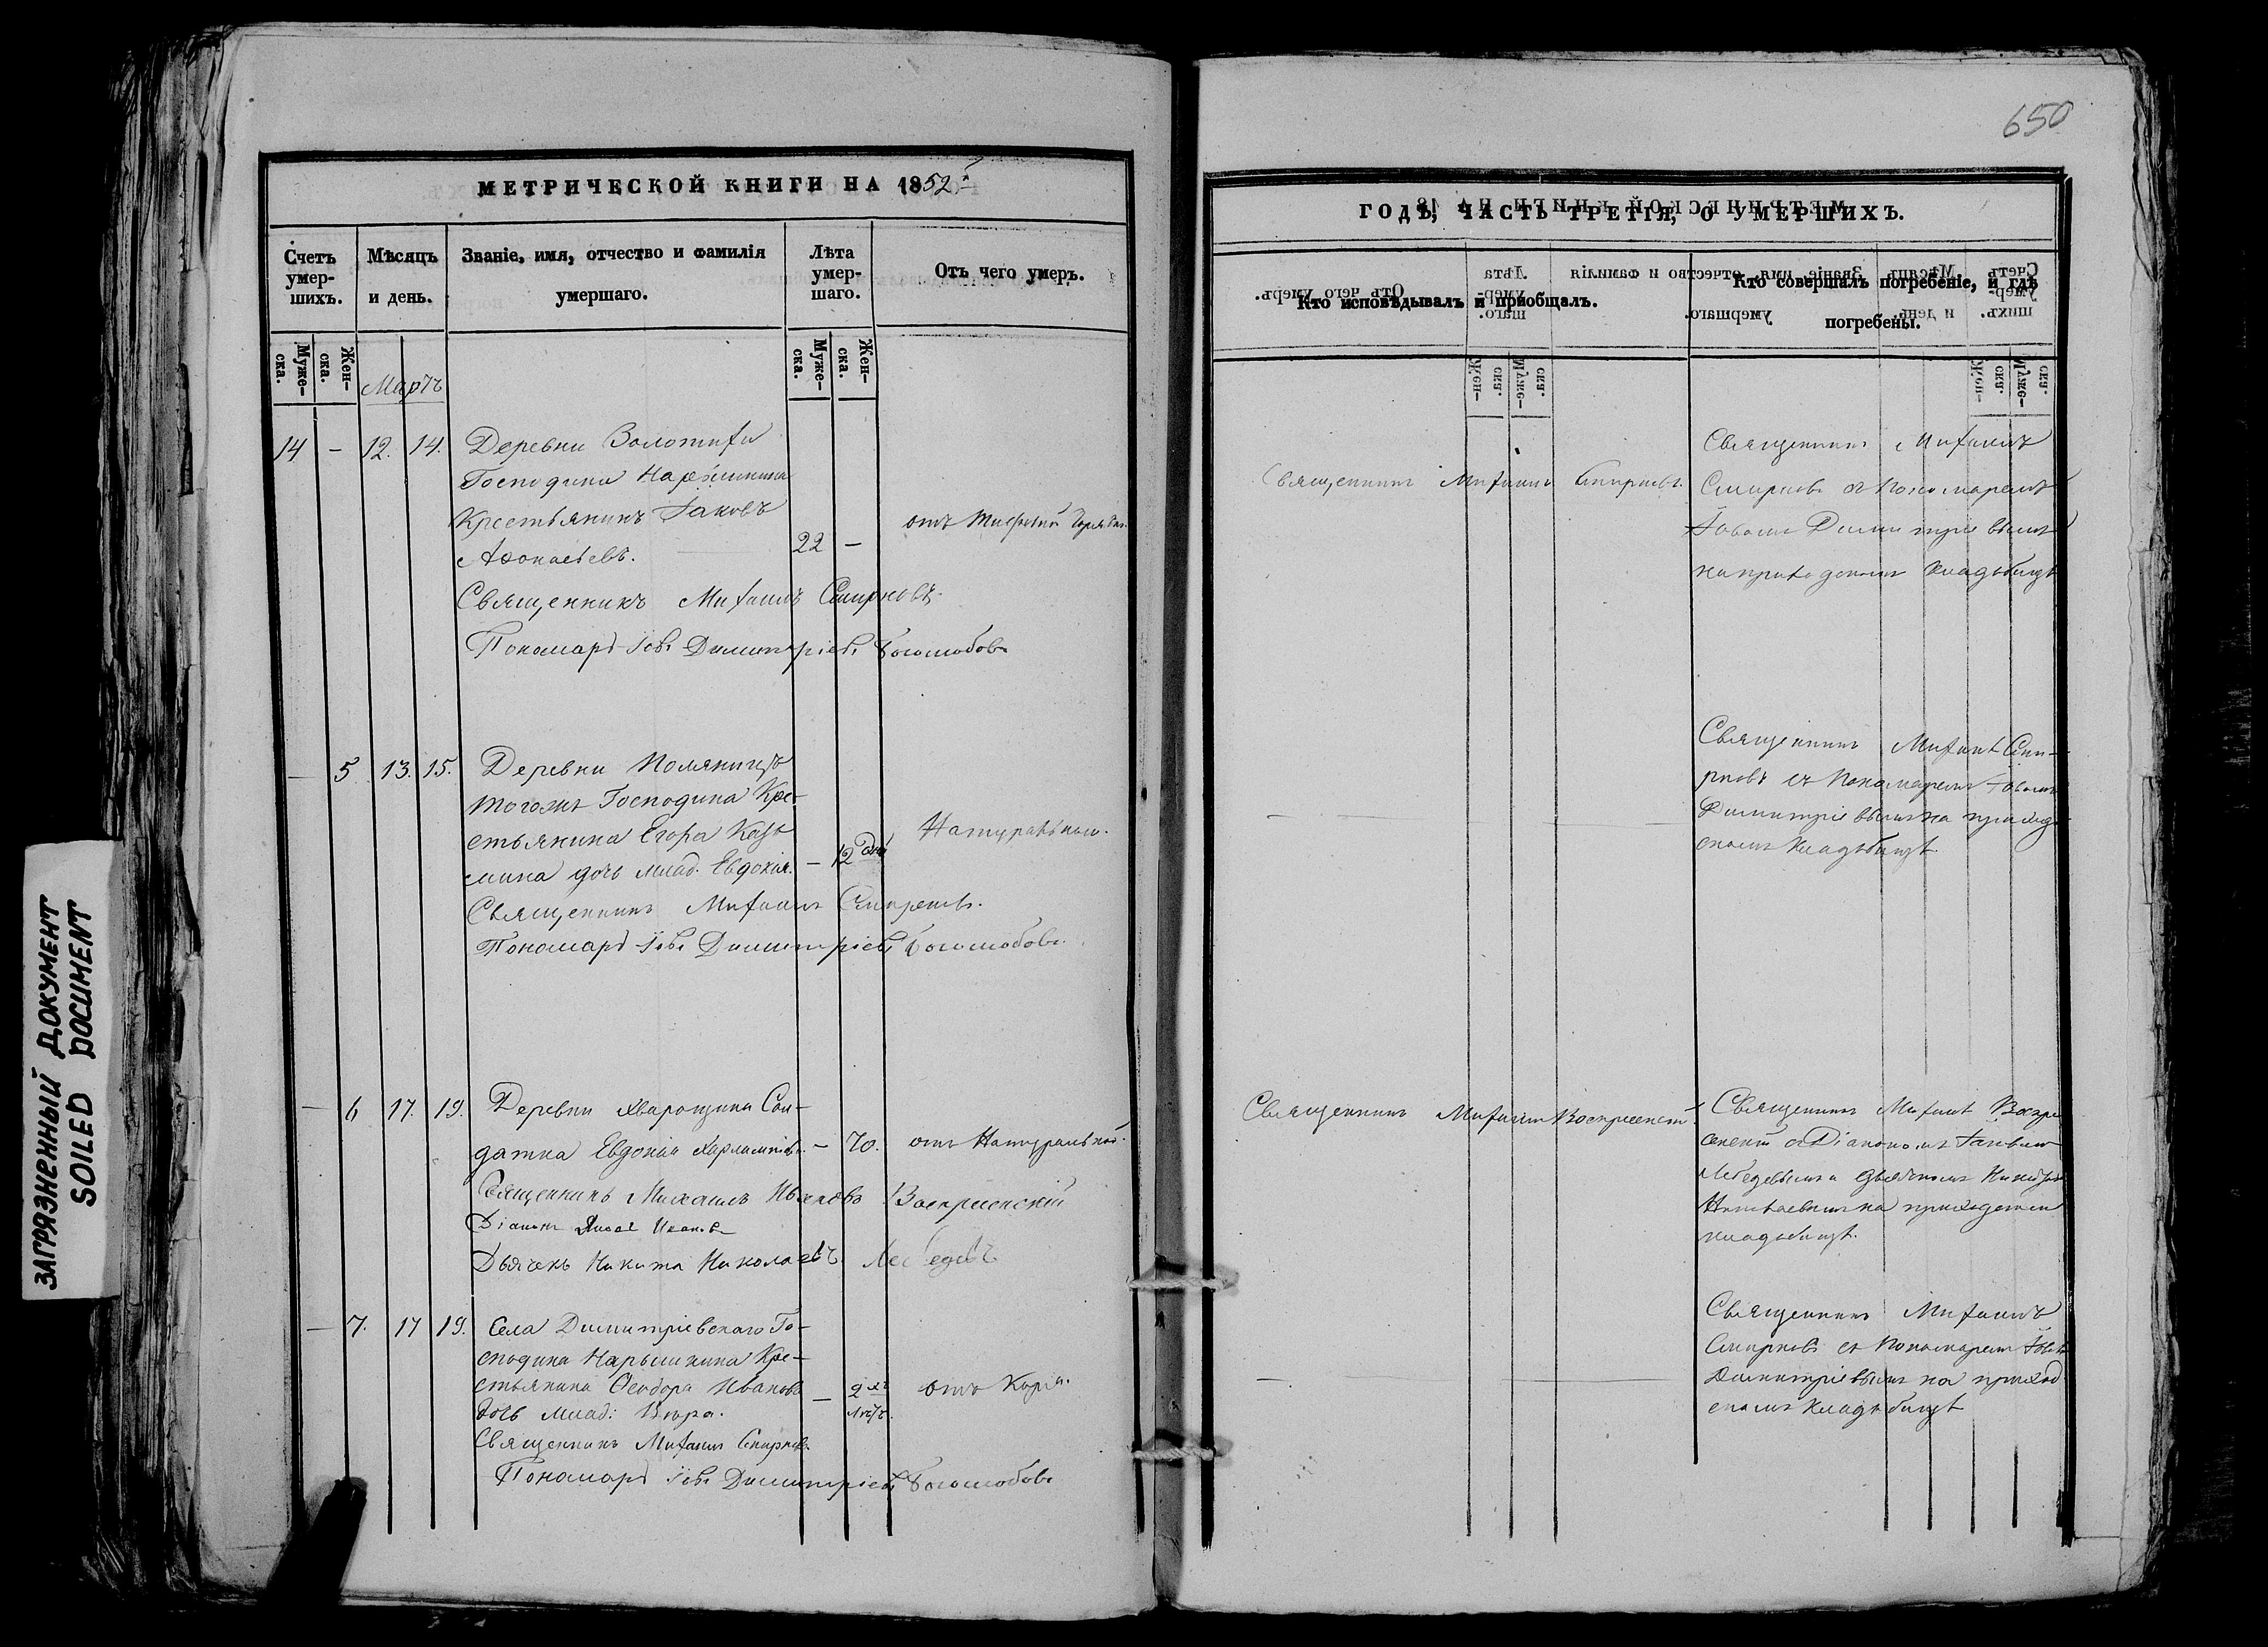 МЕТРИЧЕСКОЙ КНИГИ НА 1852
Счетъ умер-шихъ.
Мѣсяцъ и день.
Званіе, имя, отчество и фамилія умершаго.
Лѣта умер-шаго.
Отъ чего умеръ.
Муже-ска.
Жен-ска.
Муже-ска.
Жен-ска.
Мартъ
14 — 12. 14.
Деревни
Господина Нарышкина
Крестьянинъ Іаковъ
Аѳонасьевъ. 22 —
отъ
Священникъ Михаилъ Смирновъ.
Пономарь Іовъ Димитріевъ Боголюбовъ
— 5 13. 15.
Деревни
тогожъ Господина Кре-
стьянина Егора Козь
мина дочь млад. Евдокія. — 12 дней
Натуральною.
Священникъ Михаилъ Смирновъ.
Пономарь Іовъ Димитріевъ Боголюбовъ.
— 6 17. 19.
Деревни Хварощина Сол-
датка Евдокія — 70. отъ Натуральной.
Священникъ Михаилъ Ивановъ Воскресенскій
Діаконъ Яковъ Ивановъ
Дьячекъ Никита Николаевъ. Лебедевъ
— 7. 17 19.
Села Димитріевскаго Го-
сподина Нарышкина Кре-
стьянина Ѳеодора Иванова — 2 хъ отъ Коръи.
дочь млад: Вѣра. лѣтъ.
Священникъ Михаилъ Смирновъ.
Пономарь Іовъ Димитріевъ Боголюбовъ
650
ГОДЪ, ЧАСТЬ ТРЕТІЯ, О УМЕРШИХЪ.
Кто исповѣдывалъ и пріобщалъ.
Кто совершалъ погребеніе, и гдѣ погребены.
Священникъ Михаилъ Смирновъ.
Священникъ Михаилъ
Смирновъ съ Пономаремъ
Іовомъ Димитріевымъ
на приходскомъ кладбищѣ
Священникъ Михаилъ Сми-
рновъ съ Пономаремъ Іовомъ
Димитріевымъ на приход-
скомъ кладбищѣ.
Священникъ Михаилъ Воскресенскій.
Священникъ Михаилъ Воскре
сенскій съ Діакономъ Іаковомъ
Лебедевымъ и дьячкомъ Никитою
Николаевымъ на приходскомъ
кладбищѣ.
Священникъ Михаилъ
Смирновъ съ Пономаремъ Іовомъ
Димитріевымъ на приход
скомъ кладбищѣ
ЗАГРЯЗНЕННЫЙ ДОКУМЕНТ
SOILED DOCUMENT